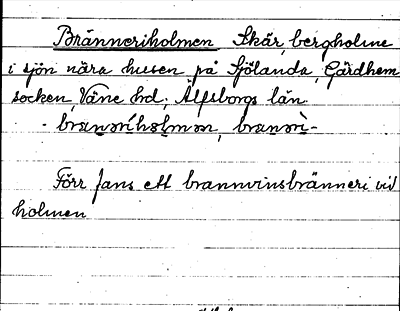 Bränneriholmen Skär, bergholme
i sjön nära husen på Sjölanda, Gärdhem
socken, Väne hd, Älfsborgs län.
Förr fans ett brännvinsbränneri vid
holmen